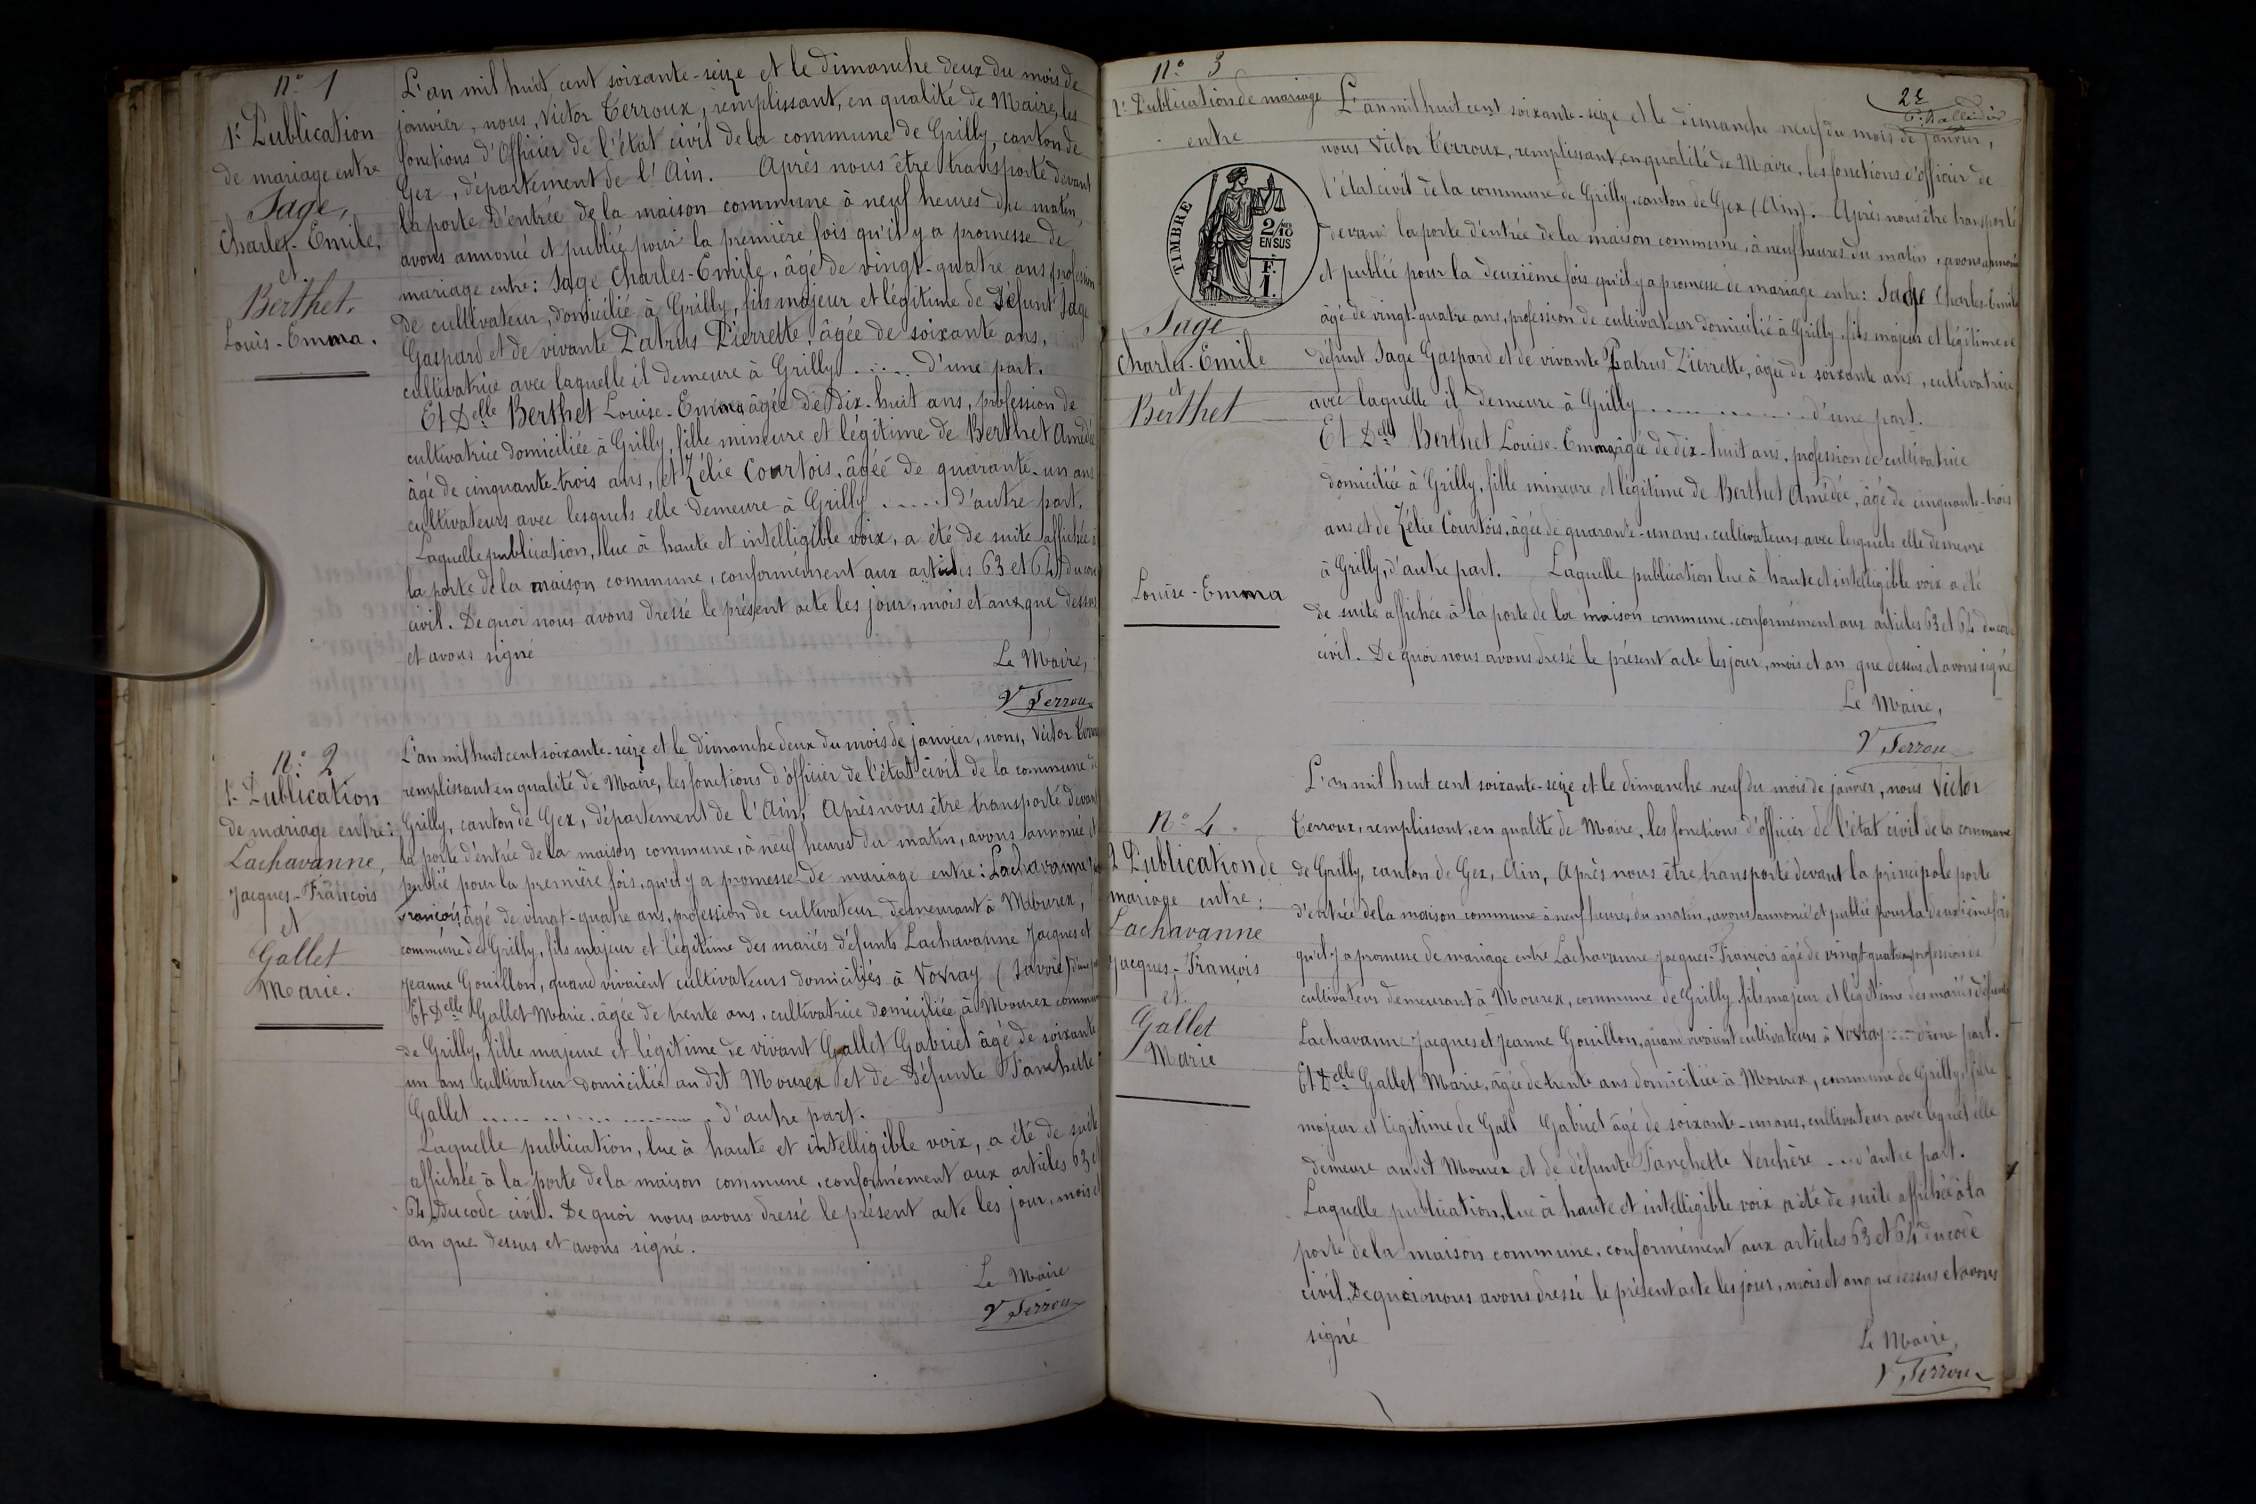 N.° 1
1.e Publication
de mariage entre
Sage,
Charles-Emile,
et
Berthet,
Louis-Emma.
L'an mil huit cent soixante-seize et le dimanche deux du mois de
janvier, nous, Victor Terroux, remplissant, en qualité de Maire, les
fonctions d'Officier de l'état civil de la commune de Grilly, canton de
Gex, département de l'Ain. Après nous être transporté devant
la porte d'entrée de la maison commune à neuf heures du matin,
avons annoncé et publié pour la première fois qu'il y a promesse de
mariage entre: Sage Charles-Emile, âgé de vingt-quatre ans, profession
de cultivateur, domicilié à Grilly, fils majeur et légitime de défunt Sage
Gaspard et de vivante Patrus Pierrette, âgée de soixante ans,
cultivatrice avec laquelle il demeure à Grilly ...... d'une part.
Et Delle Berthet Louise-Emma âgée de dix-huit ans, profession de
cultivatrice domiciliée à Grilly, fille mineure et légitime de Berthet Amédée
âgé de cinquante-trois ans, et Zélie Courtois, âgée de quarante-un ans
cultivateurs avec lesquels elle demeure à Grilly ...... d'autre part.
Laquelle publication, lue à haute et intelligible voix, a été de suite affichée à
la porte de la maison commune, conformément aux articles 63 et 64 du code
civil. De quoi nous avons dressé le présent acte les jour, mois et an que dessus
et avons signé
Le Maire,
V Terroux
N.° 2
1.e Publication
de mariage entre:
Lachavanne,
Jacques-François
et
Gallet
Marie.
L'an mil huit cent soixante-seize et le dimanche deux du mois de janvier, nous, Victor Terroux
remplissant en qualité de Maire, les fonctions d'officier de l'état civil de la commune de
Grilly, canton de Gex, département de l'Ain, Après nous être transporté devant
la porte d'entrée de la maison commune, à neuf heures du matin, avons annoncé et
publié pour la première fois, qu'il y a promesse de mariage entre: Lachavanne
François, âgé de vingt-quatre ans, profession de cultivateur demeurant à Mourex,
commune de Grilly, fils majeur et légitime des mariés défunts Lachavanne Jacques et
Jeanne Gouillon, quand vivaient cultivateurs domiciliés à Vovray (Savoie) d'une part
Et Delle Gallet Marie, âgée de trente ans, cultivatrice domiciliée à Mourex commune
de Grilly, fille majeure et légitime de vivant Gallet Gabriel âgé de soixante
un ans cultivateur domicilié au dit Mourex et de défunte Fanchette
Gallet .................. d'autre part.
Laquelle publication, lue à haute et intelligible voix, a été de suite
affichée à la porte de la maison commune, conformément aux articles 63 et
64 du code civil. De quoi nous avons dressé le présent acte les jour, mois et
an que dessus et avons signé.
Le Maire
V Terroux
2e
N.° 3
1.e Publication de mariage
entre
TIMBRE
2/10 EN SUS
F. 1.
Sage
Charles-Emile
et
Berthet
Louise-Emma
L'an mil huit cent soixante-seize et le dimanche neuf du mois de janvier,
nous Victor Terroux, remplissant, en qualité de Maire, les fonctions d'officier de
l'état civil de la commune de Grilly, canton de Gex (Ain). Après nous être transporté
devant la porte d'entrée de la maison commune, à neuf heures du matin, avons annoncé
et publié pour la deuxième fois qu'il y a promesse de mariage entre: Sage Charles-Emile
âgé de vingt-quatre ans, profession de cultivateur domicilié à Grilly, fils majeur et légitime de
défunt Sage Gaspard et de vivante Patrus Pierrette, âgée de soixante ans, cultivatrice
avec laquelle il demeure à Grilly ............ d'une part.
Et Delle Berthet Louise-Emma âgée de dix-huit ans, profession de cultivatrice
domiciliée à Grilly, fille mineure et légitime de Berthet Amédée, âgé de cinquante-trois
ans et de Zélie Courtois, âgée de quarante-un ans, cultivateurs avec lesquels elle demeure
à Grilly, d'autre part. Laquelle publication lue à haute et intelligible voix a été
de suite affichée à la porte de la maison commune conformément aux articles 63 et 64 du code
civil. De quoi nous avons dressé le présent acte les jour, mois et an que dessus et avons signé
Le Maire,
V Terroux
N.° 4.
2 Publication de
mariage entre:
Lachavanne
Jacques-François
et
Gallet
Marie
L'an mil huit cent soixante-seize et le dimanche neuf du mois de janvier, nous Victor
Terroux, remplissant, en qualité de Maire, les fonctions d'officier de l'état civil de la commune
de Grilly, canton de Gex, Ain, Après nous être transporté devant la principale porte
d'entrée de la maison commune à neuf heures du matin, avons annoncé et publié pour la deuxième fois
qu'il y a promesse de mariage entre Lachavanne Jacques-François âgé de vingt-quatre ans profession de
cultivateur demeurant à Mourex, commune de Grilly, fils majeur et légitime des mariés défunts
Lachavanne Jacques et Jeanne Gouillon, quand vivaient cultivateurs à Vovray .... d'une part.
Et Delle Gallet Marie, âgée de trente ans domiciliée à Mourex, commune de Grilly, fille
majeur et légitime de Galt Gabriel âgé de soixante-un ans, cultivateur avec lequel elle
demeure au dit Mourex et de défunte Fanchette Verchère .... d'autre part.
Laquelle publication, lue à haute et intelligible voix a été de suite affichée à la
porte de la maison commune, conformément aux articles 63 et 64 du code
civil, De quoi nous avons dressé le présent acte les jour, mois et an que dessus et avons
signé
Le Maire,
V Terroux